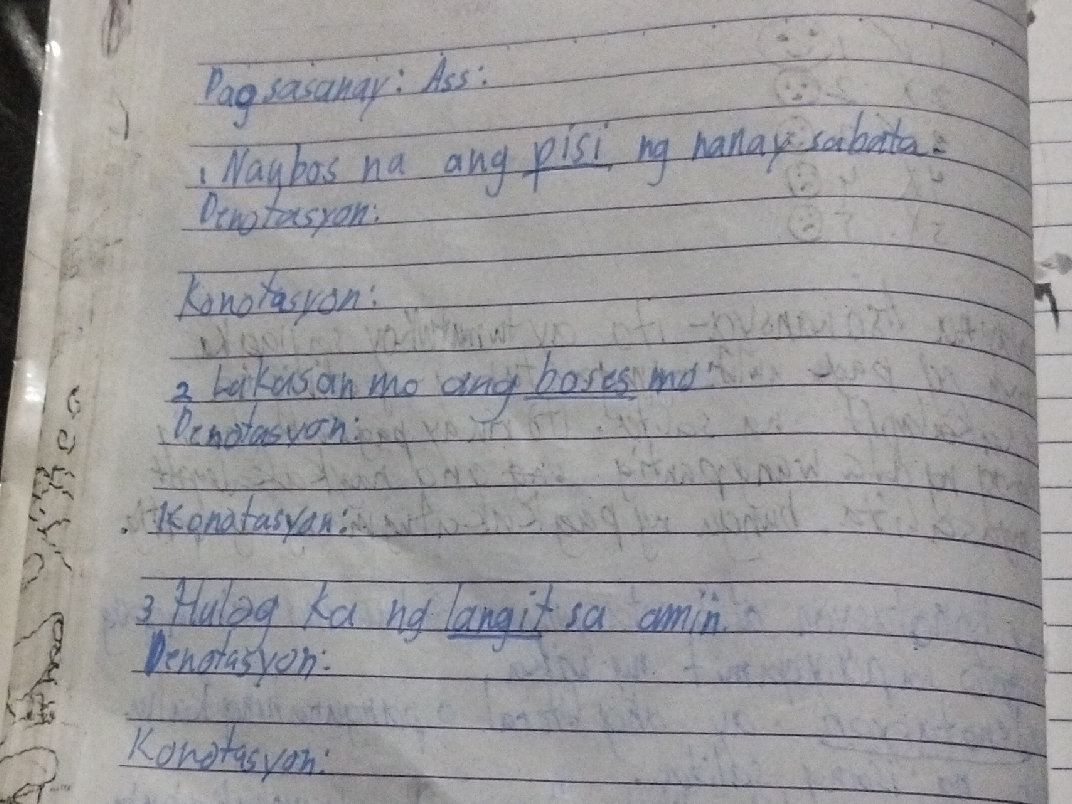 Pagsasanay: Ass:
1 Naybos na ang pisi ng nanay sabata.
Denotasyon:
Konotasyon:
2 Lakasan mo ang boses mo
Denotasyon:
Konotasyon:
3 Hulog ka ng langit sa amin.
Denotasyon:
Konotasyon: